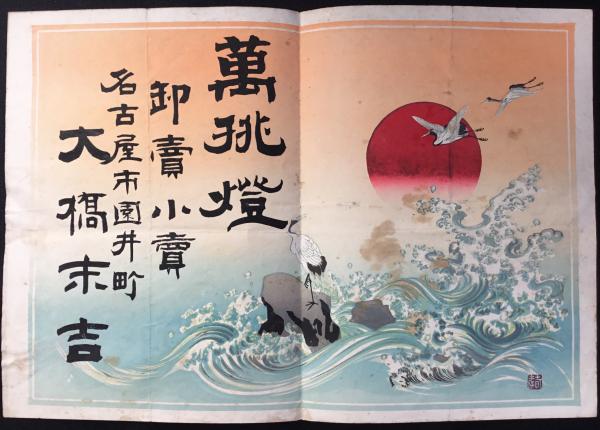 萬挑燈
卸賣小賣
名古屋市園井町
大橋末吉